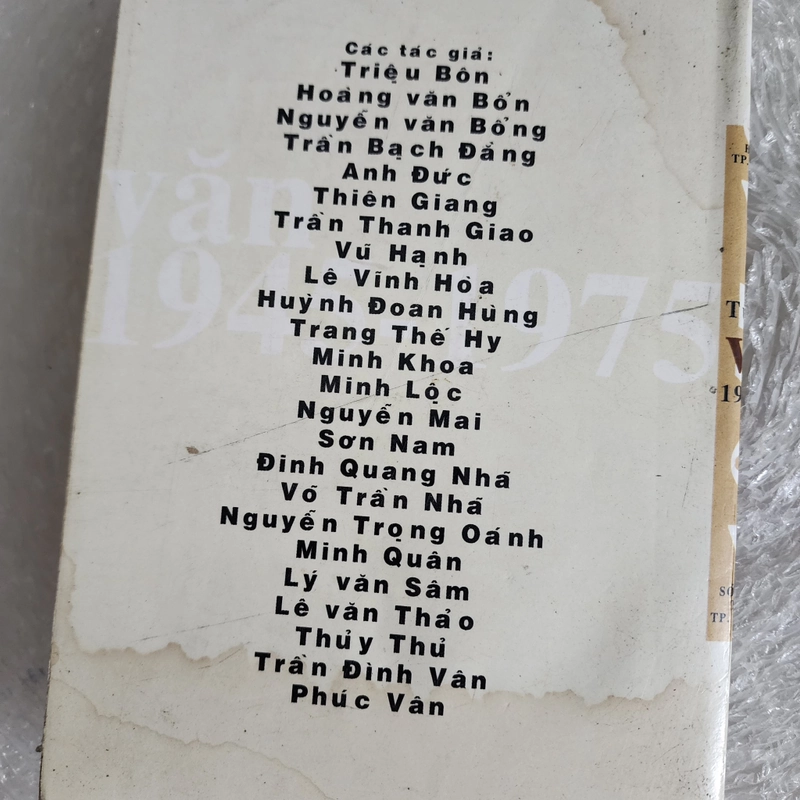 Các tác giả:
Triệu Bôn
Hoàng văn Bổn
Nguyễn văn Bổng
Trần Bạch Đằng
Anh Đức
Thiên Giang
Trần Thanh Giao
Vũ Hạnh
Lê Vĩnh Hòa
Huỳnh Đoan Hùng
Trang Thế Hy
Minh Khoa
Minh Lộc
Nguyễn Mai
Sơn Nam
Đinh Quang Nhã
Võ Trần Nhã
Nguyễn Trọng Oánh
Minh Quân
Lý văn Sâm
Lê văn Thảo
Thủy Thủ
Trần Đình Vân
Phúc Vân
văn
1945 1975
TP.
19
TP.